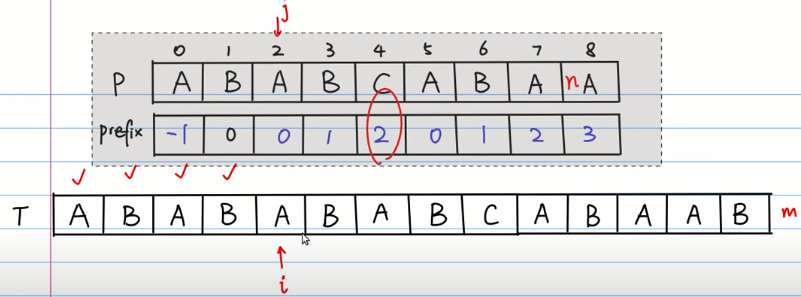 j
0 1 2 3 4 5 6 7 8
P A B A B C A B A n A
prefix -1 0 0 1 2 0 1 2 3
T A B A B A B A B C A B A A B m
i